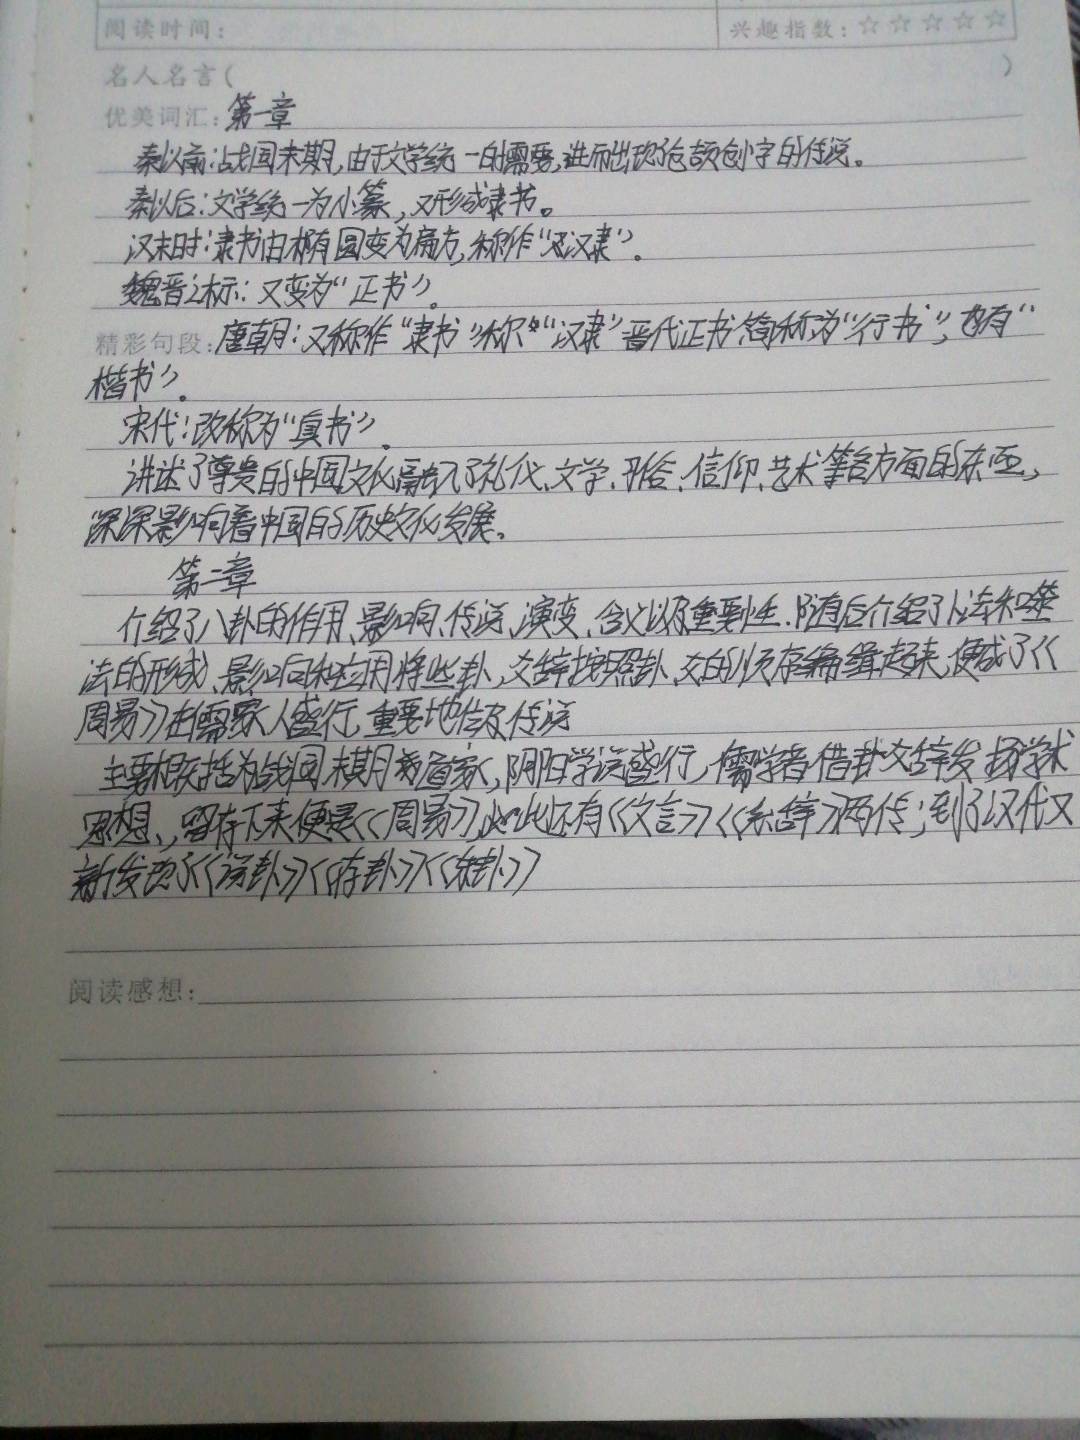 阅读时间: 兴趣指数:☆☆☆☆☆
名人名言( )
优美词汇:第一章
秦以前:战国末期,由于文学统一的需要,进而出现仓颉创字的传说。
秦以后:文学统一为小篆,又形成隶书。
汉末时:隶书由椭圆变为扁方,称作“汉隶”。
魏晋之标:又变为“正书”。
精彩句段:唐朝:又称作“隶书”称“汉隶”晋代正书简称为“行书”,也有“
楷书”。
宋代:改称为“真书”。
讲述了尊贵的中国文化融入了礼仪、文学、信仰、艺术等各方面的东西,
深深影响着中国的历史文化发展。
第二章
介绍了八卦的作用、影响、传说、演变、含义以及重要性.随后介绍了卜法和筮
法的形成、影响和应用将些卦,爻辞按照卦、爻的顺序编缉起来,便成了《
周易》在儒家人盛行,重要地位及传说
主要概括为战国末期道家,阴阳学说盛行,儒学者借卦爻辞发扬学术
思想、,留存下来便是《周易》,此还有《文言》《系辞》两传;到了汉代又
新发现了《说卦》《序卦》《杂卦》
阅读感想: